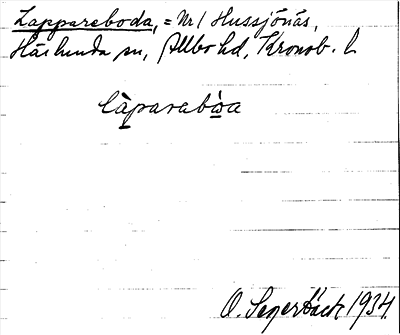 Lappareboda, = Nr 1 Hussjönäs,
Härlunda sn, Allbo hd, Kronob. l.
l̀aparabẁa
O. Segerbäck 1934.